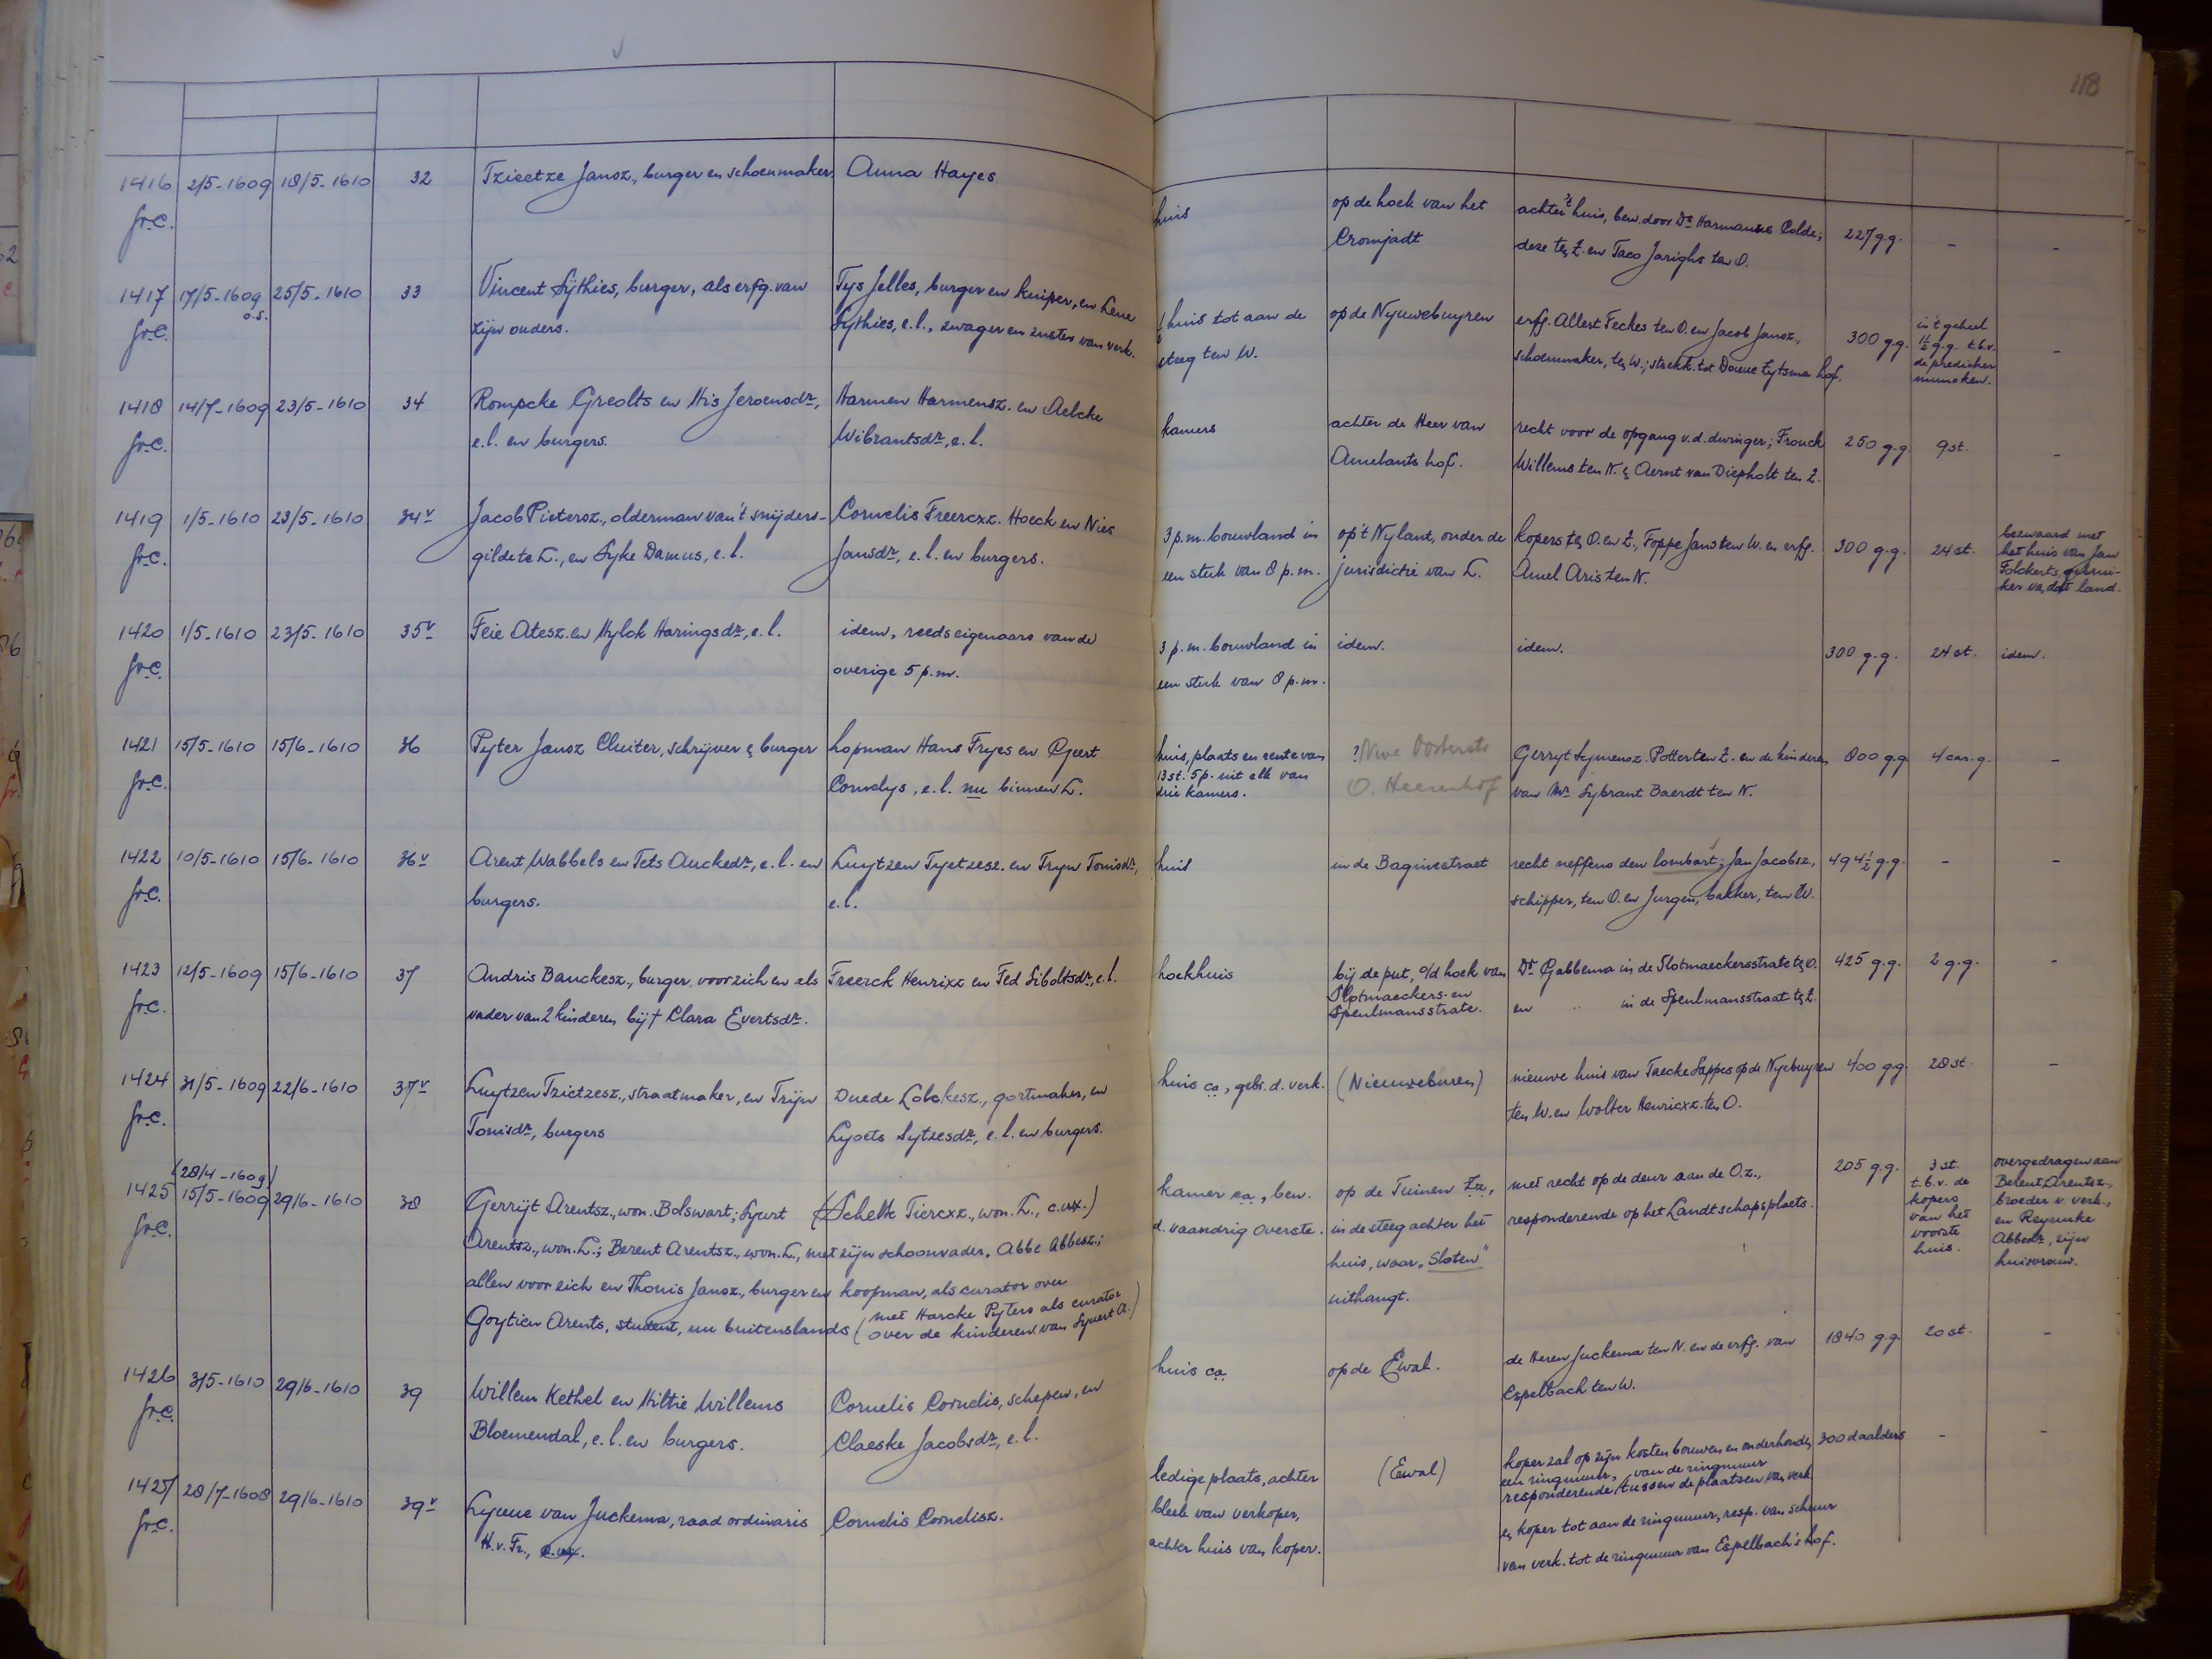 118
1416 2/5-1609 18/5-1610 32 Tzieetze Jansz., burger en schoenmaker Anna Hayes huis op de hoek van het achter 't huis, bew. door Dr Harmanus Colde; 227 g.g. - -
gr.C. Cromjadt deze ten Z. en Taco Jarighs ten O.
1417 17/5-1609 25/5-1610 33 Vincent Sÿthies, burger, als erfg. van Tys Jelles, burger en kuiper, en Lene huis tot aan de op de Nyuwebuyren erfg. Allert Feckes ten O. en Jacob Jansz., 300 g.g. in 't geheel -
o.s.
gr.C. zijn ouders. Sythies, e.l., zwager en zuster van verk. steeg ten W. schoenmaker, ten W.; strekk. tot Douue Sytsma hof. 1½ g.g. t.b.v.
de predicker
munneken.
1418 14/7-1609 23/5-1610 34 Rompcke Greolts en His Jeroensdr, Harmen Harmensz. en Aelcke kamers achter de Heer van recht voor de opgang v.d. dwinger; Frouck 250 g.g. 9 st. -
gr.C. e.l. en burgers. Wibrantsdr, e.l. Amelants hof. Willems ten N. & Aernt van Diepholt ten Z.
1419 1/5-1610 23/5-1610 34v Jacob Pietersz., olderman van 't snijders- Cornelis Freercxz. Hoeck en Nies 3 p.m. bouwland in op 't Nylant, onder de kopers ten O. en Z., Foppe Jans ten W. en erfg. 300 g.g. 24 st. bezwaard met
gr.C. gilde te L., en Syke Damus, e.l. Jansdr, e.l. en burgers. een stuk van 8 p.m. jurisdictie van L. Amel Aris ten N. het huis van Jan
Folckerts, gebrui-
ker van dat land.
1420 1/5-1610 23/5-1610 35v Feie Atesz. en Hylck Haringsdr, e.l. idem, reeds eigenaars van de 3 p.m. bouwland in idem. idem. 300 g.g. 24 st. idem.
gr.C. overige 5 p.m. een stuk van 8 p.m.
1421 15/5-1610 15/6-1610 36 Pyter Jansz Cluiter, schrijver & burger hopman Hans Fryes en Geert huis, plaats en rente van ? Nwe Oosterstr Gerryt Symensz. Potter ten Z. en de kinderen 800 g.g. 4 car.g. -
gr.C. Cornelys, e.l. nu binnen L. 13 st. 5 p. uit elk van O. Heerenhof van Mr Sybrant Baerdt ten N.
drie kamers.
1422 10/5-1610 15/6-1610 36v Arent Wabbels en Tets Auckedr, e.l. en Luytzen Tyetzesz. en Tryn Tonisdr, huis in de Baginestraet recht neffens den lombart; Jan Jacobsz., 494½ g.g. - -
gr.C. burgers. e.l. schipper, ten O. en Jurgen, bakker, ten W.
1423 12/5-1609 15/6-1610 37 Andris Bauckesz., burger, voor zich en als Freerck Henrixz en Fed Siboltsdr, e.l. hoekhuis bij de put, o/d hoek van Dr Gabbema in de Slotmaeckersstrate ten O. 425 g.g. 2 g.g. -
gr.C. vader van 2 kinderen bij † Clara Evertsdr. Slotmaeckers- en en " in de Speulmansstraat ten Z.
Speulmansstrate.
1424 31/5-1609 22/6-1610 37v Luytzen Tzietzesz., straatmaker, en Trijn Duede Lolckesz., gortmaker, en huis ca, gebr. d. verk. (Nieuweburen) nieuwe huis van Taecke Sappes op de Nyebuyren 400 g.g. 28 st. -
gr.C. Tonisdr, burgers Lyoets Sytzesdr, e.l. en burgers. ten W. en Wolter Henricxz. ten O.
(28/4-1609)
1425 15/5-1609 29/6-1610 38 Gerrijt Arentsz., won. Bolswart; Syurt (Schelte Tiercxz., won. L., c.ux.) kamer ca, bew. op de Tuinen Zz, met recht op de deur aan de O.z., 205 g.g. 3 st. overgedragen aan
gr.C. Arentsz., won. L.; Berent Arentsz., won. L., met zijn schoonvader, Abbe Abbesz.; d. vaandrig Overste. in de steeg achter het responderende op het Landtschapsplaets. t.b.v. de Berent Arentsz.,
allen voor zich en Thonis Jansz., burger en koopman, als curator over huis, waar „Sloten" kopers broeder v. verk.,
Goytien Arents, student, nu buitenslands (met Harcke Pyters als curator uithangt. van het en Reynuke
over de kinderen van Syuert A.) voorste Abbedr, zijn
huis. huisvrouw.
1426 3/5-1610 29/6-1610 39 Willem Kethel en Hiltie Willems Cornelis Cornelis, schepen, en huis ca op de Ewal. de Heren Juckema ten N. en de erfg. van 1840 g.g. 20 st. -
gr.C. Bloemendal, e.l. en burgers. Claeske Jacobsdr, e.l. Espelbach ten W.
1427 28/7-1608 29/6-1610 39v Lyuue van Juckema, raad ordinaris Cornelis Cornelisz. ledige plaats, achter (Ewal) koper zal op zijn kosten bouwen en onderhouden 300 daalders - -
gr.C. H.v.Fr., c.ux. bleek van verkoper, een ringmuur, van de ringmuur
achter huis van koper. responderende tussen de plaatsen van verk.
en koper tot aan de ringmuur, resp. van schuur
van verk. tot de ringmuur van Espelbach's hof.